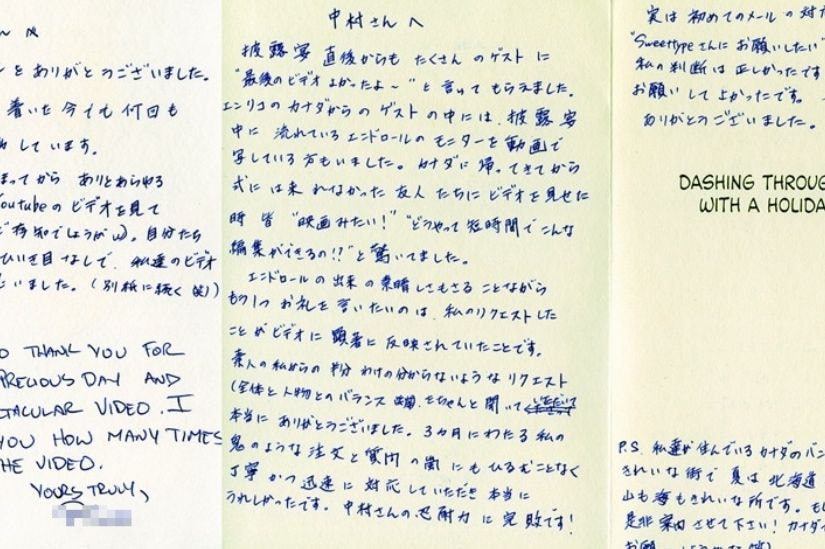 をありがとうございました。
着いた今でも何回も
しています。
まってから ありとあらゆる
YoutubeのビデオをÈ見て
ご存知でしょうがw)。自分たち
ひいき目なしで、私達のビデオ
いました。(別紙に続く 笑)
THANK YOU FOR
PRECIOUS DAY AND
TACULAR VIDEO. I
YOU HOW MANY TIMES
HE VIDEO.
YOURS TRULY,
中村さんへ
披露宴 直後からも たくさんのゲストに
"最後のビデオよかったよ〜"と言ってもらえました。
エンリコのカナダからのゲストの中には、披露宴
中に 流れているエンドロールのモニターを動画で
写している方もいました。カナダに帰ってきてから
式には来れなかった友人たちにビデオを見せた
時 皆 "映画みたい!" "どうやって短時間でこんな
編集ができるの!?"と驚いてました。
エンドロールの出来の素晴しさもさることながら
もう1つお礼を言いたいのは、私のリクエストした
ことがビデオに顕著に反映されていたことです。
素人の私からの半分わけの分からないようなリクエスト
(全体と人物とのバランス 等)をちゃんと聞いていただいて
本当にありがとうございました。3ヵ月にわたる私の
鬼のような注文と質問の嵐にもひるむことなく
丁寧かつ迅速に対応していただき本当に
うれしかったです。中村さんの忍耐力に完敗です!
実は初めてのメールの対
"Sweettypeさんにお願いしたい"
私の判断は正しかったです
お願いしてよかったです。
ありがとうございました。
DASHING THROUG
WITH A HOLIDA
P.S. 私達が住んでいるカナダのバン
きれいな街で 夏は北海道
山も海もきれいな所です。も
是非案内させて下さい!カナダ